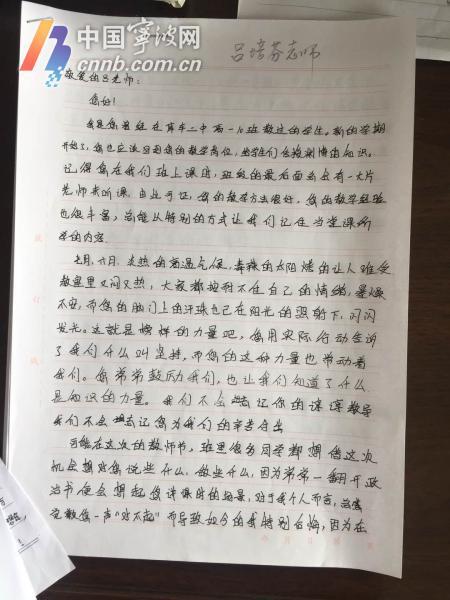 中国宁波网
cnnb.com.cn
吕培芬老师
敬爱的吕老师:
您好!
我是您曾经在库车二中高一·10班教过的学生。新的学期
开始了,您也应该回到您的教学岗位,给学生们传授渊博的知识。
记得您在我们班上课时,班级的最后面总是有一大片
老师来听课,由此可证,您的教学方法很好,您的教学经验
也很丰富,总能以特别的方式让我们记住当堂课所
学的内容.
七月、六月,炎热的高温气候,毒辣的太阳烤的让人难受
教室里又闷又热,大家都按耐不住自己的情绪,暴燥
不安,而您的脑门上的汗珠也已在阳光的照射下,闪闪
发光。这就是榜样的力量吧,您用实际行动告诉
了我们什么叫坚持,而您的这种力量也带动着
我们。您常常鼓励我们,也让我们知道了什么
是知识的力量。我们不会忘记你的谆谆教导
我们不会忘记您为我们的辛苦付出
可能在这次的教师节,班里很多同学都想借这次
机会想对您说些什么,做些什么,因为常常一翻开政
治书便会想起您讲课时的场景,对于我个人而言,总感
觉欠您一声“对不起”而导致如今的我特别后悔,因为在